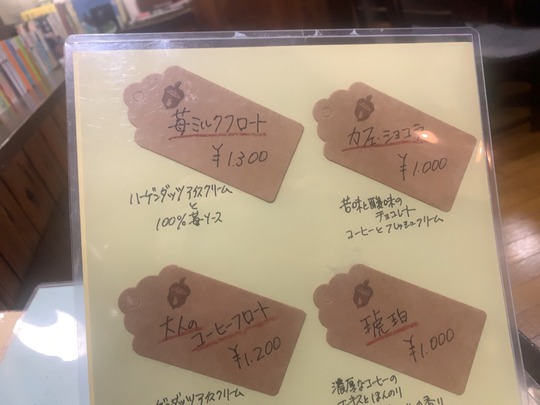 苺ミルクフロート
¥1,300
ハーゲンダッツアイスクリーム
と
100%苺ソース
カフェ・ショコラ
¥1,000
苦味と酸味の
チョコレート
コーヒーとフレッシュクリーム
大人の
コーヒーフロート
¥1,200
ハーゲンダッツアイスクリーム
琥珀
¥1,000
濃厚なコーヒーの
エキスとほんのり
の香り